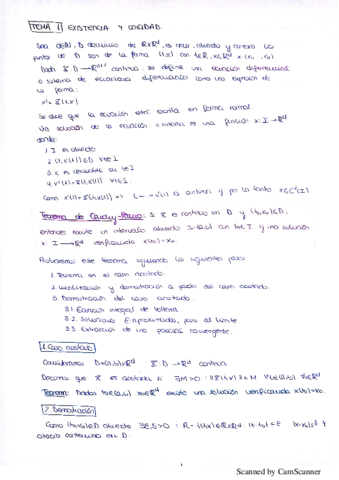 TEMA 1 EXISTENCIA Y UNICIDAD.
Sea d∈ℕ, D dominio de ℝxℝᵈ, es decir, abierto y conexo. Los
puntos de D son de la forma (t,x) con t∈ℝ, x∈ℝᵈ x=(x₁, ,xd)
Dada f: D→ℝᵈ continua se define una ecuación diferencial
o sistema de ecuaciones diferenciales como una expresión de
la forma:
x'=f(t,x)
Se dice que la ecuación está escrita en forma normal.
Una solución de la ecuación o sistema es una función x: I→ℝᵈ
donde:
1. I es abierto
2. (t,x(t))∈D ∀t∈I
3. x es derivable en I
4. x'(t)=f(t,x(t)) ∀t∈I.
Como x'(t)=f(t,x(t)) x'(t) continua y por lo tanto x∈C¹(I)
Teorema de Cauchy-Peano: Si f es continua en D y (t₀,x₀)∈D,
entonces existe un intervalo abierto I con t₀∈I y una solución
x I→ℝᵈ verificando x(t₀)=x₀.
Probaremos este teorema siguiendo los siguientes pasos:
1. Teorema en el caso acotado.
2. Localización y demostración a partir del caso acotado.
3. Demostración del caso acotado.
3.1. Ecuación integral de Volterra.
3.2. Soluciones aproximadas, paso al límite
3.3. Extracción de una parcial convergente.
1. Caso acotado
Consideramos D=(a,b)xℝᵈ f: D→ℝᵈ continua
Decimos que f es acotada si ∃M>0 : ‖f(t,x)‖≤M ∀t∈(a,b) ∀x∈ℝᵈ
Teorema: Dados t₀∈(a,b) x₀∈ℝᵈ existe una solución verificando x(t₀)=x₀.
2. Demostración
Como (t₀,x₀)∈D abierto ∃
abierto contenido en D.
1
Scanned by CamScanner